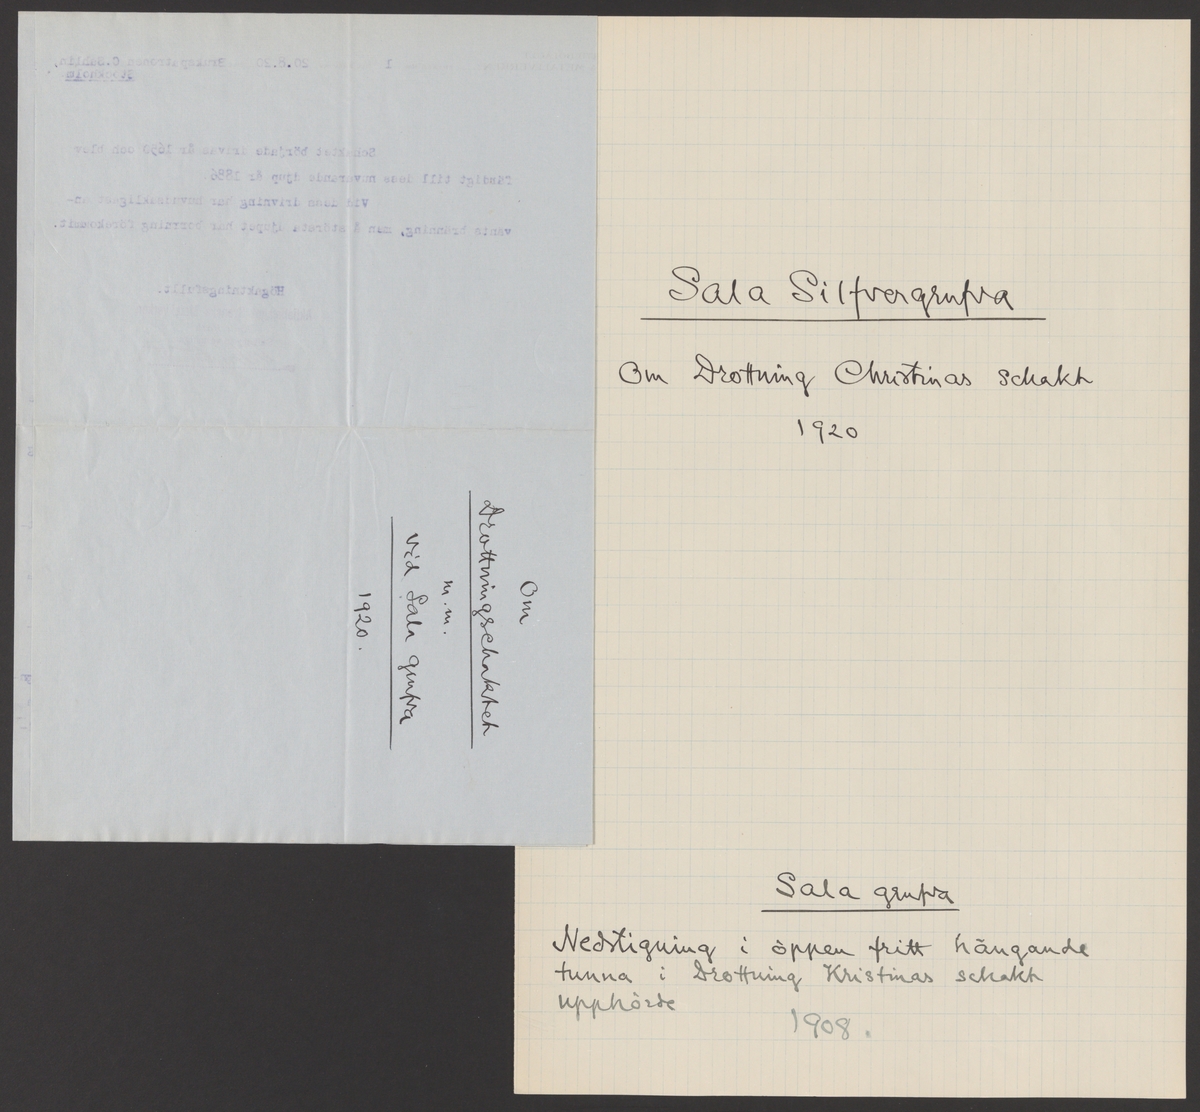 1 20.8.20 Brukspatronen C.Sahlin,
Stockholm.
Schaktet började drivas år 1650 och blev
färdigt till dess nuvarande djup år 1886.
Vid dess drivning har huvudsakligast an-
vänts bränning, men å största djupet har borrning förekommit.
Högaktningsfullt.
Om
Drottningschaktet
m.m.
vid Sala grufva
1920.
Sala Silfvergrufva
Om Drottning Christinas schakt
1920
Sala grufva
Nedstigning i öppen fritt hängande
tunna i Drottning Kristinas schakt
upphörde
1908.